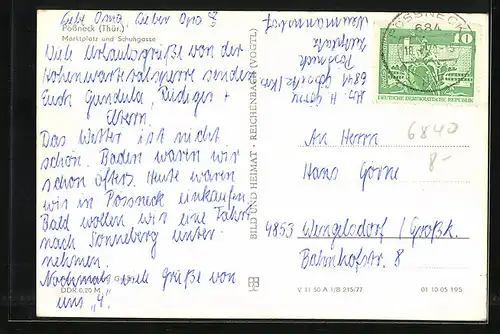 Liebe Oma, Lieber Opa!
Pößneck (Thür.)
Marktplatz und Schuhgasse
Viele Urlaubsgrüße von der
Hohenwartetalsperre senden
Euch Gundula, Rüdiger +
Eltern.
Das Wetter ist nicht
schön. Baden waren wir
schon öfters. Heute waren
wir in Pössneck einkaufen.
Bald wollen wir eine Fahrt
nach Sonneberg unter-
nehmen.
Nochmals viele Grüße von
uns "4".
DDR 0,20 M
BILD UND HEIMAT · REICHENBACH (VOGTL)
Abs. H. Görne
6841
Pössneck
Zeltplatz
PÖSSNECK
684
10
DEUTSCHE DEMOKRATISCHE REPUBLIK
6840
8-
An Herrn
Hans Görne
4853 Wengelsdorf / Großk.
Bahnhofstr. 8
V 11 50 A 1/B 215/77
01 10 05 195